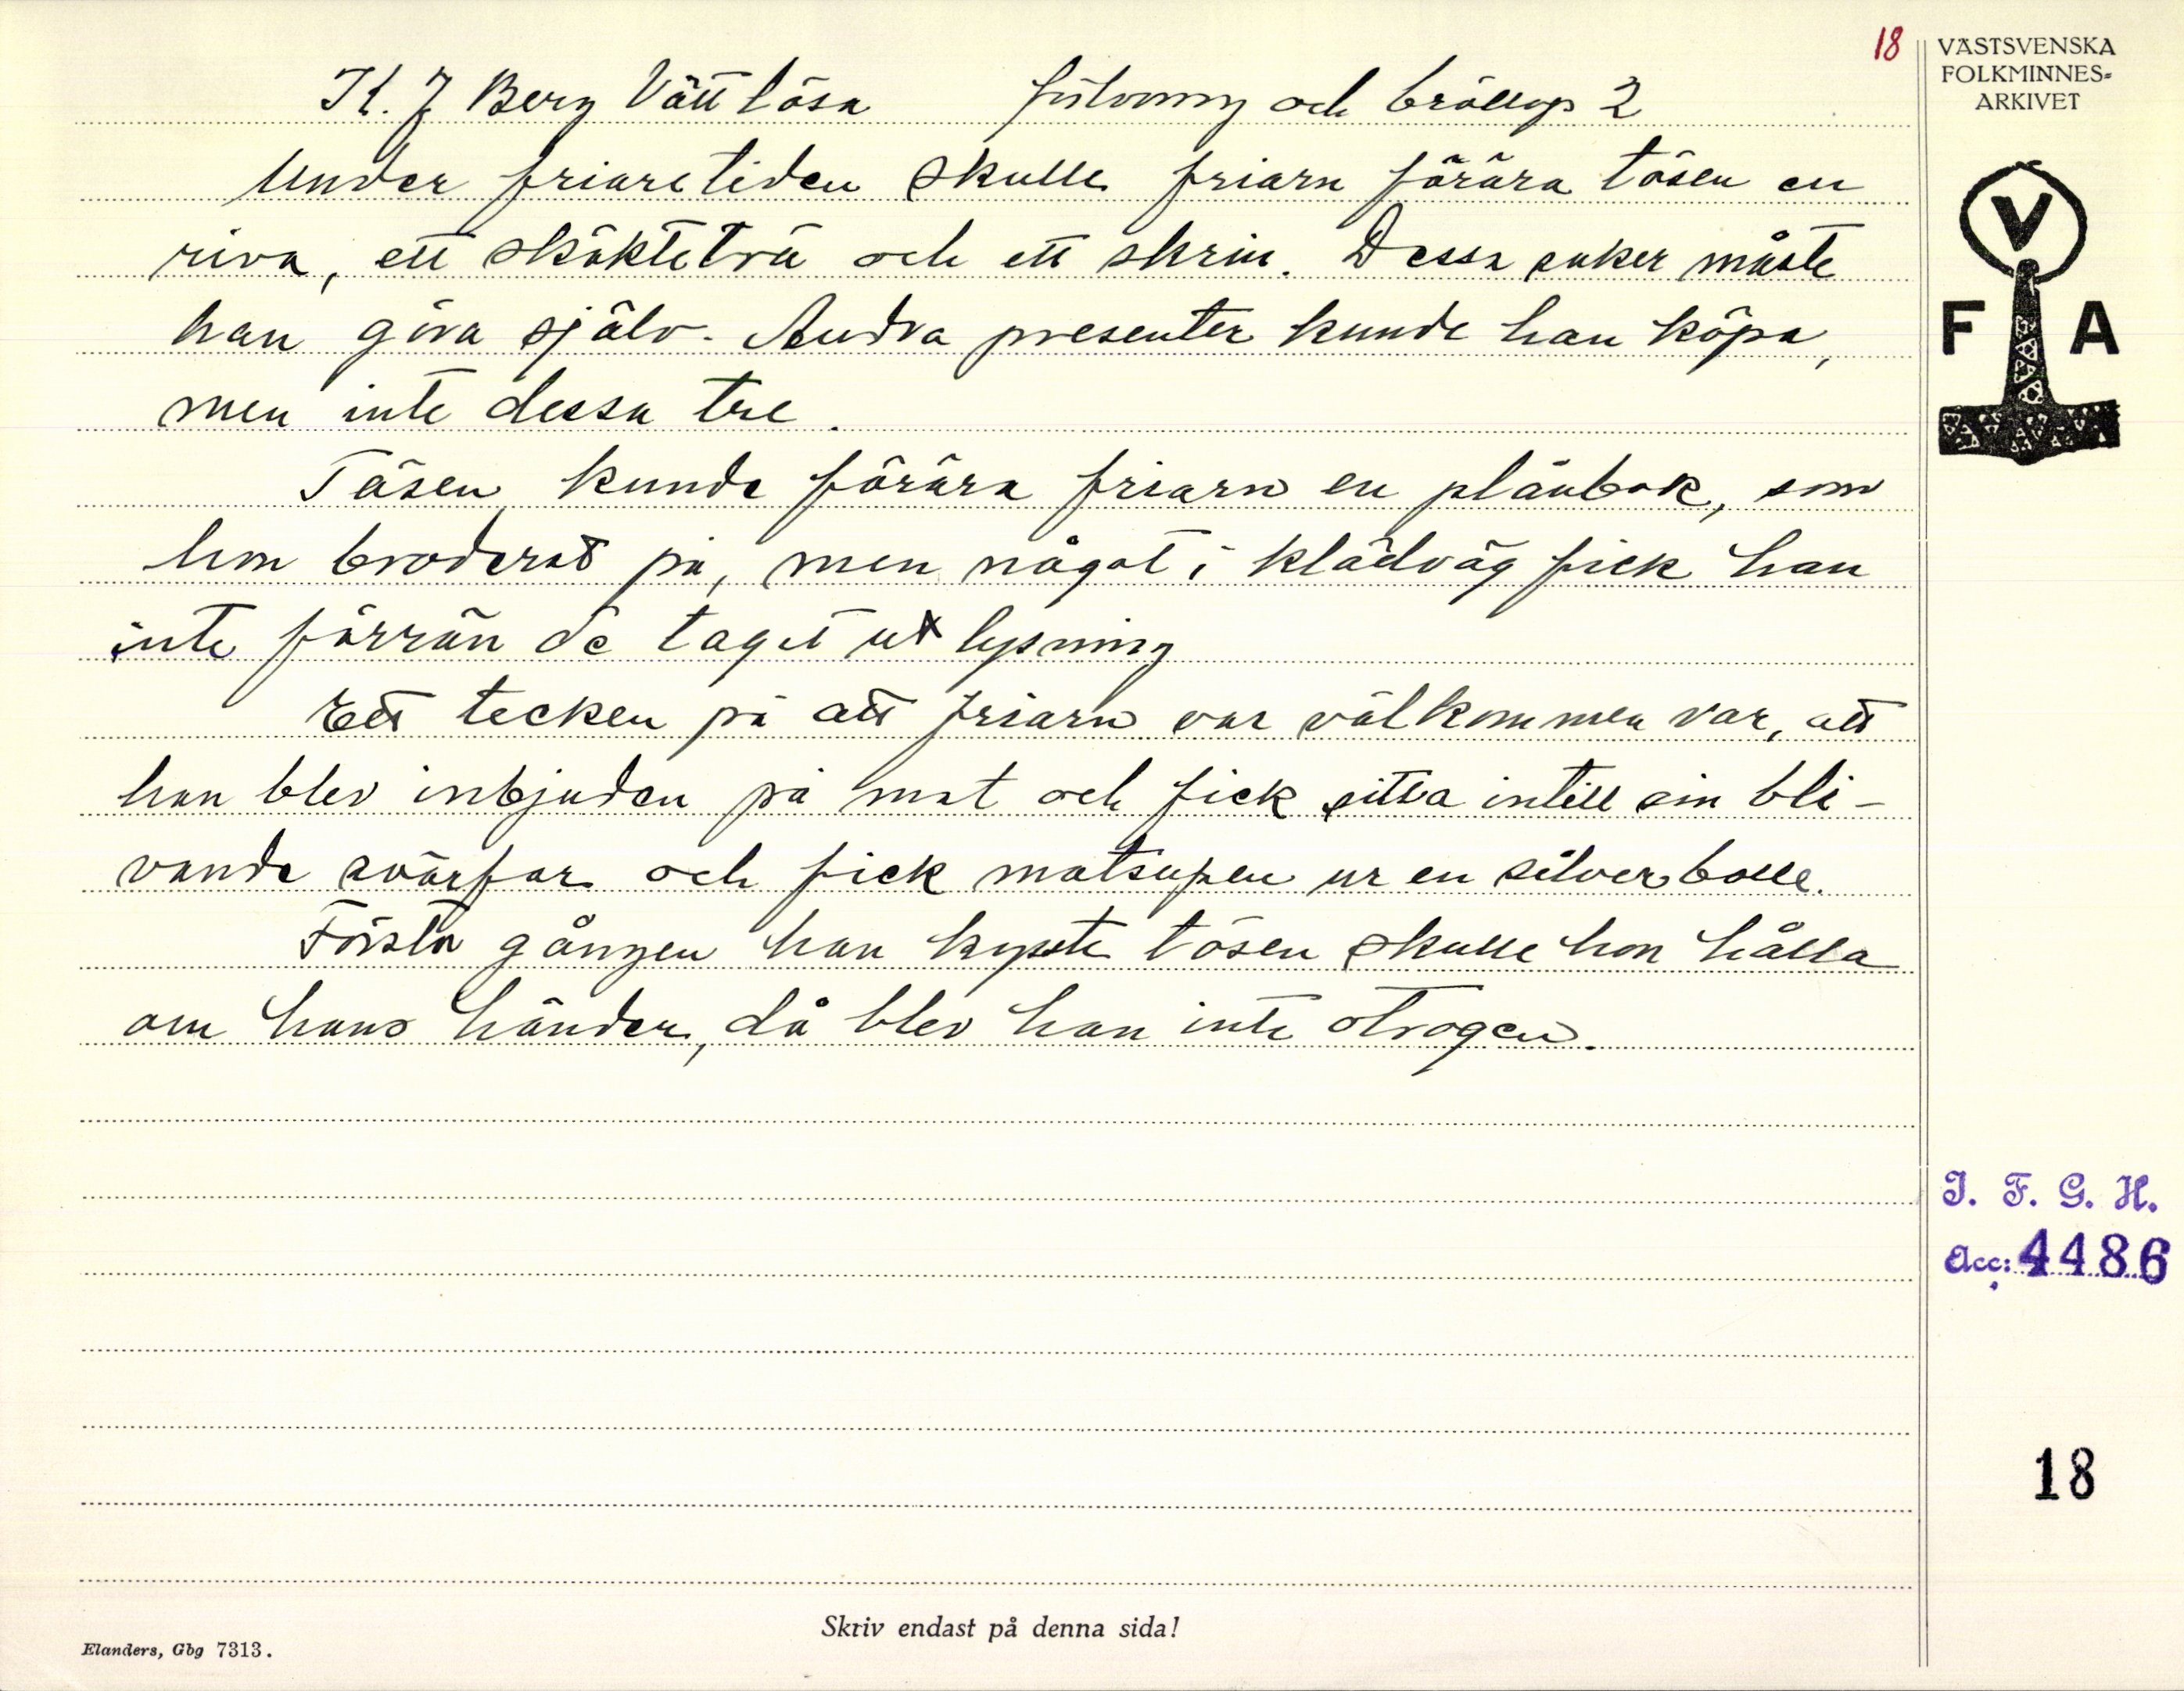 18
VÄSTSVENSKA
FOLKMINNES-
ARKIVET
K. J Berg Vättlösa förlovning och bröllop 2
Under friaretiden skulle friarn förära tösen en
riva, ett skäkteträ och ett skrin. Dessa saker måste
han göra själv. Andra presenter kunde han köpa,
men inte dessa tre.
Tösen kunde förära friarn en plånbok, som
hon broderat på, men något i klädväg fick han
inte förrän de tagit ut lysning
Ett tecken på att friarn var välkommen var, att
han blev inbjuden på mat och fick sitta intill sin bli-
vande svärfar och fick matsupen ur en silverbolle.
Första gången han kysste tösen skulle hon hålla
om hans händer, då blev han inte otrogen.
V
F A
I. F. G. H.
Acc: 4486
18
Skriv endast på denna sida!
Elanders, Gbg 7313.